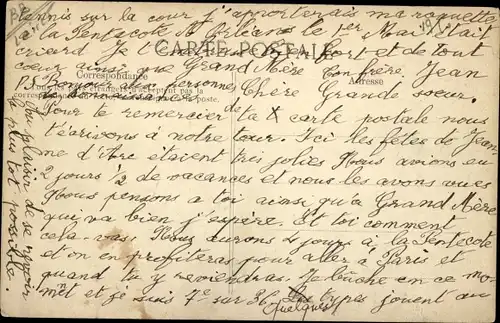 tennis sur la cour j'apporterais ma raquette
à la Pentecôte A Orléans le 1er Mai était
criard Je t'embrasse fort et de tout
CARTE POSTALE
coeur ainsi que Grand Mère Ton frère Jean
Correspondance
Adresse
Tous les
personnes
Chère Grande soeur.
Pour te remercier de ta X carte postale nous
t'écrisons à notre tour. Ici les fêtes de Jean
me d'Arc étaient très jolies Nous avions eu
2 jours ½ de vacances et nous les avons vues
Nous pensons a toi ainsi qu'a Grand Mère
qui va bien j'espère. Et toi comment
cela va. Nous aurons 4 jours a la Pentecôte
et on en profiteras pour aller à Paris et
quand tu y reviendras. Je bûche en ce mo-
ment et je suis 7e sur 36. types jouent au
Quelques
plaisir de se revoir
le plus tot possible.